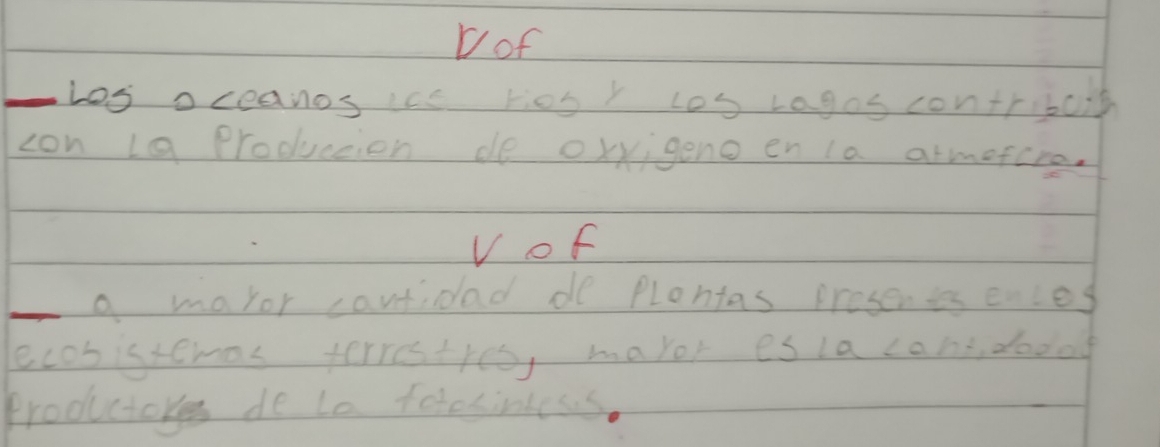 V o f
— Los oceanos los rios y los lagos contribuyen
con la Produccion de oxxigeno en la atmofera.
V o f
— a mayor cantidad de Plantas Presentes en los
ecosistemas terrestres, mayor es la cantidad de
Productores de la fotosintesis.